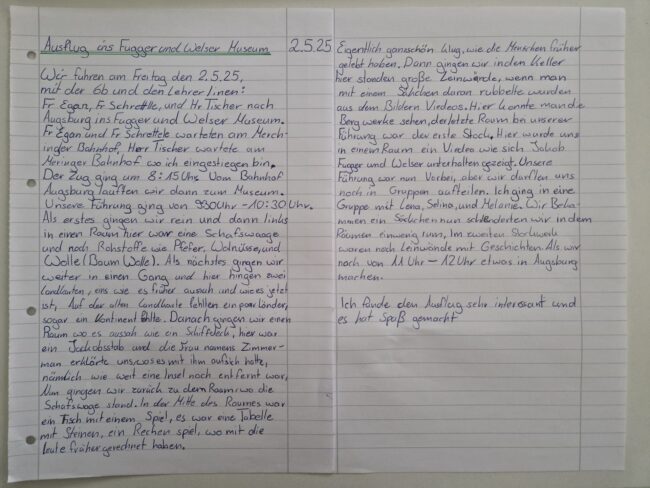 Ausflug ins Fugger und Welser Museum
2.5.25
Wir fuhren am Freitag den 2.5.25,
mit der 6b und den Lehrer/inen:
Fr Egan, Fr Schrettle, und Hr Tischer nach
Augsburg ins Fugger und Welser Museum.
Fr Egan und Fr Schrettele warteten am Merch-
inger Bahnhof, Herr Tischer wartete am
Meringer Bahnhof wo ich eingestiegen bin.
Der Zug ging um 8:15 Uhr. Vom Bahnhof
Augsburg lauften wir dann zum Museum.
Unsere Führung ging von 930Uhr-10:30Uhr.
Als erstes gingen wir rein und dann links
in einen Raum hier war eine Schafswaage
und noch Rohstoffe wie Pfefer, Walnüsse, und
Wolle (Baum Wolle). Als nächstes gingen wir
weiter in einen Gang und hier hingen zwei
Landkarten, eins wie es früher aussah und wie es jetzt
ist, Auf der alten Landkarte fehllen ein paar Länder,
sogar ein Kontinent fehlte. Danach gingen wir einen
Raum wo es aussah wie ein Schiffdeck, hier war
ein Jackobsstab und die Frau namens Zimmer-
man erklärte uns was es mit ihm aufsich hatte,
nämlich wie weit eine Insel noch entfernt war,
Nun gingen wir zurück zu dem Raam wo die
Schafswage stand. In der Mitte des Raumes war
ein Tisch mit einem Spiel, es war eine Tabelle
mit Steinen, ein Rechen spiel, wo mit die
Leute früher gerechnet haben.
Eigentlich ganzschön klug, wie die Menschen früher
gelebt haben. Dann gingen wir in den Keller
hier standen große Leinwände, wenn man
mit einem Säckchen daran rubbelte wurden
aus dem Bildern Viedeos. Hier konnte man die
Berg werke sehen, der letzte Raum bei unserer
Führung war der erste Stock. Hier wurde uns
in einem Raum ein Viedeo wie sich Jakob
Fugger und Welser unterhalten gezeigt. Unsere
Führung war nun Vorbei, aber wir darften uns
noch in Gruppen aufteilen. Ich ging in eine
Gruppe mit Lena, Selina, und Melanie. Wir Beka-
men ein Säckchen nun schlenderten wir in dem
Räumen einwenig rum, Im zweiten Stockwerk
waren noch Leinwände mit Geschichten. Als wir
noch von 11 Uhr - 12 Uhr etwas in Augsburg
machen.
Ich finde den Ausflug sehr interesant und
es hat Spaß gemacht